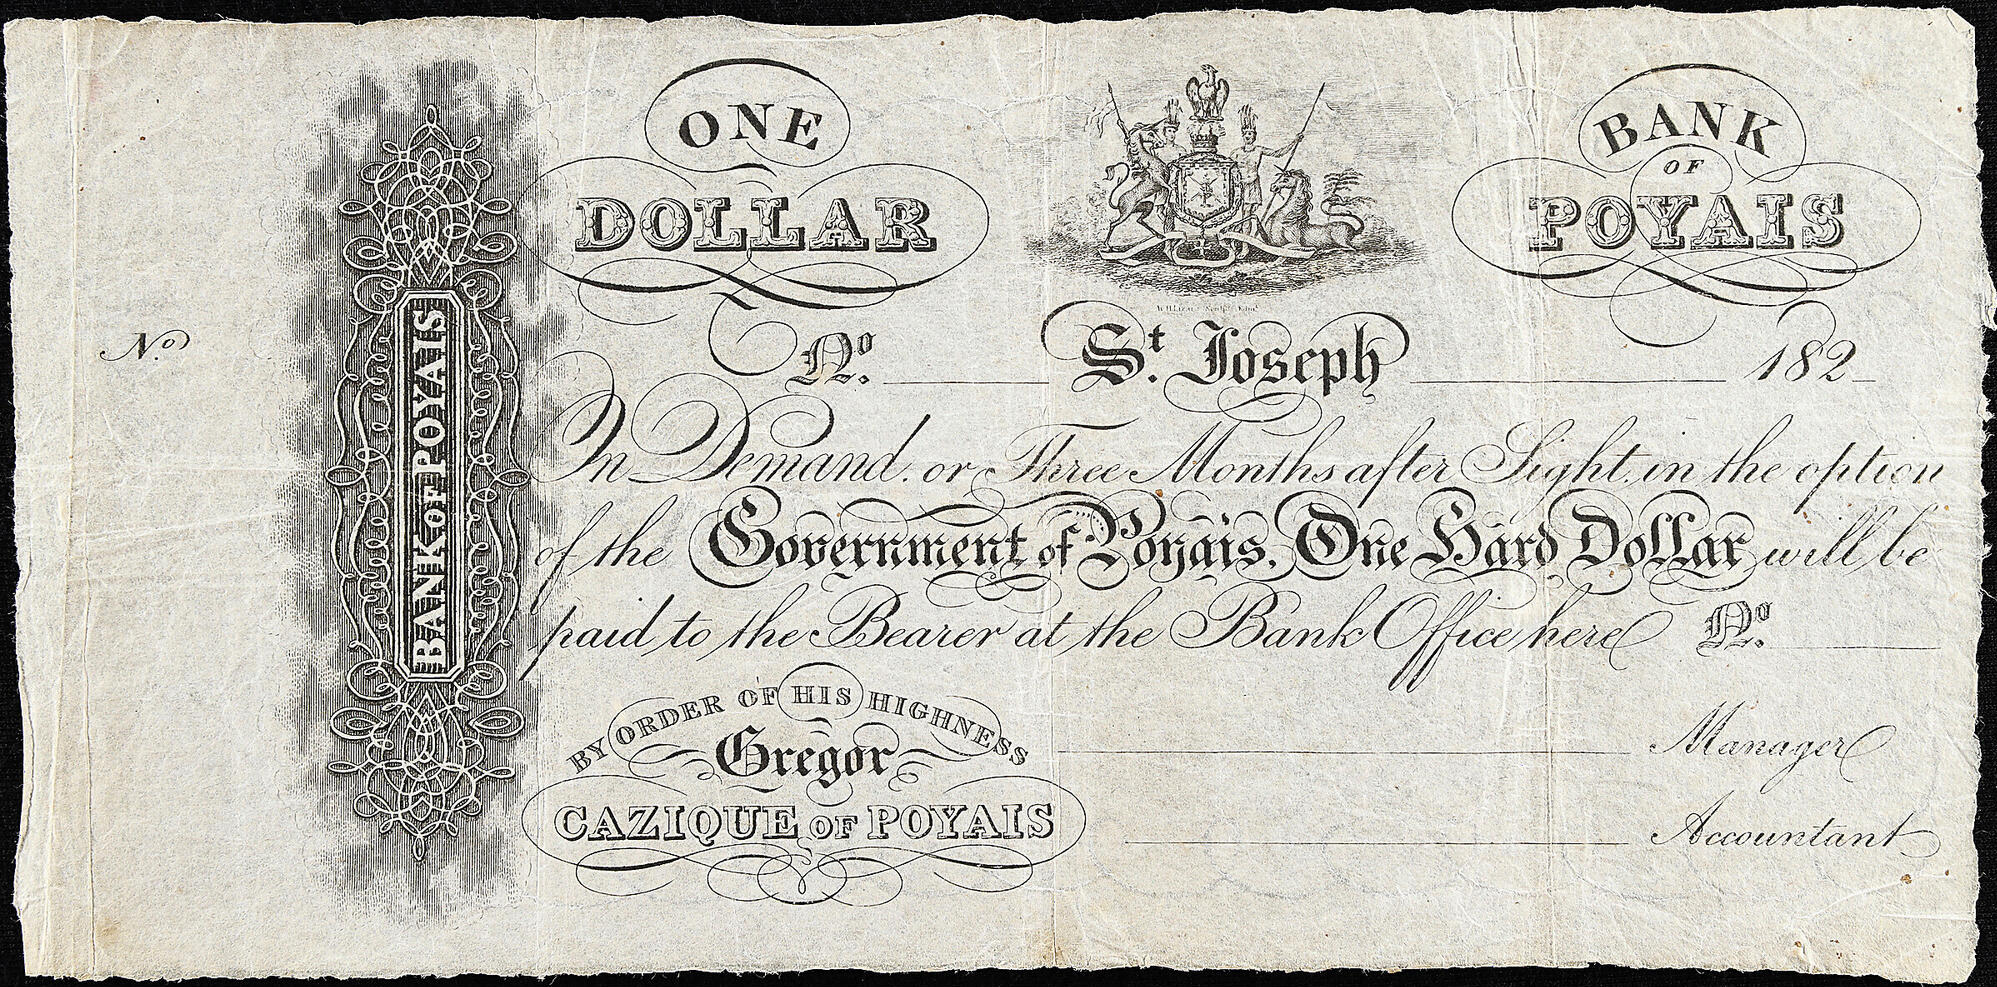 ONE
DOLLAR
BANK
OF
POYAIS
BANK OF POYAIS
No
No. St. Joseph 182
On Demand. or Three Months after Sight. in the option
of the Government of Poyais. One Hard Dollar will be
paid to the Bearer at the Bank Office here No.
BY ORDER OF HIS HIGHNESS
Gregor
CAZIQUE OF POYAIS
Manager
Accountant